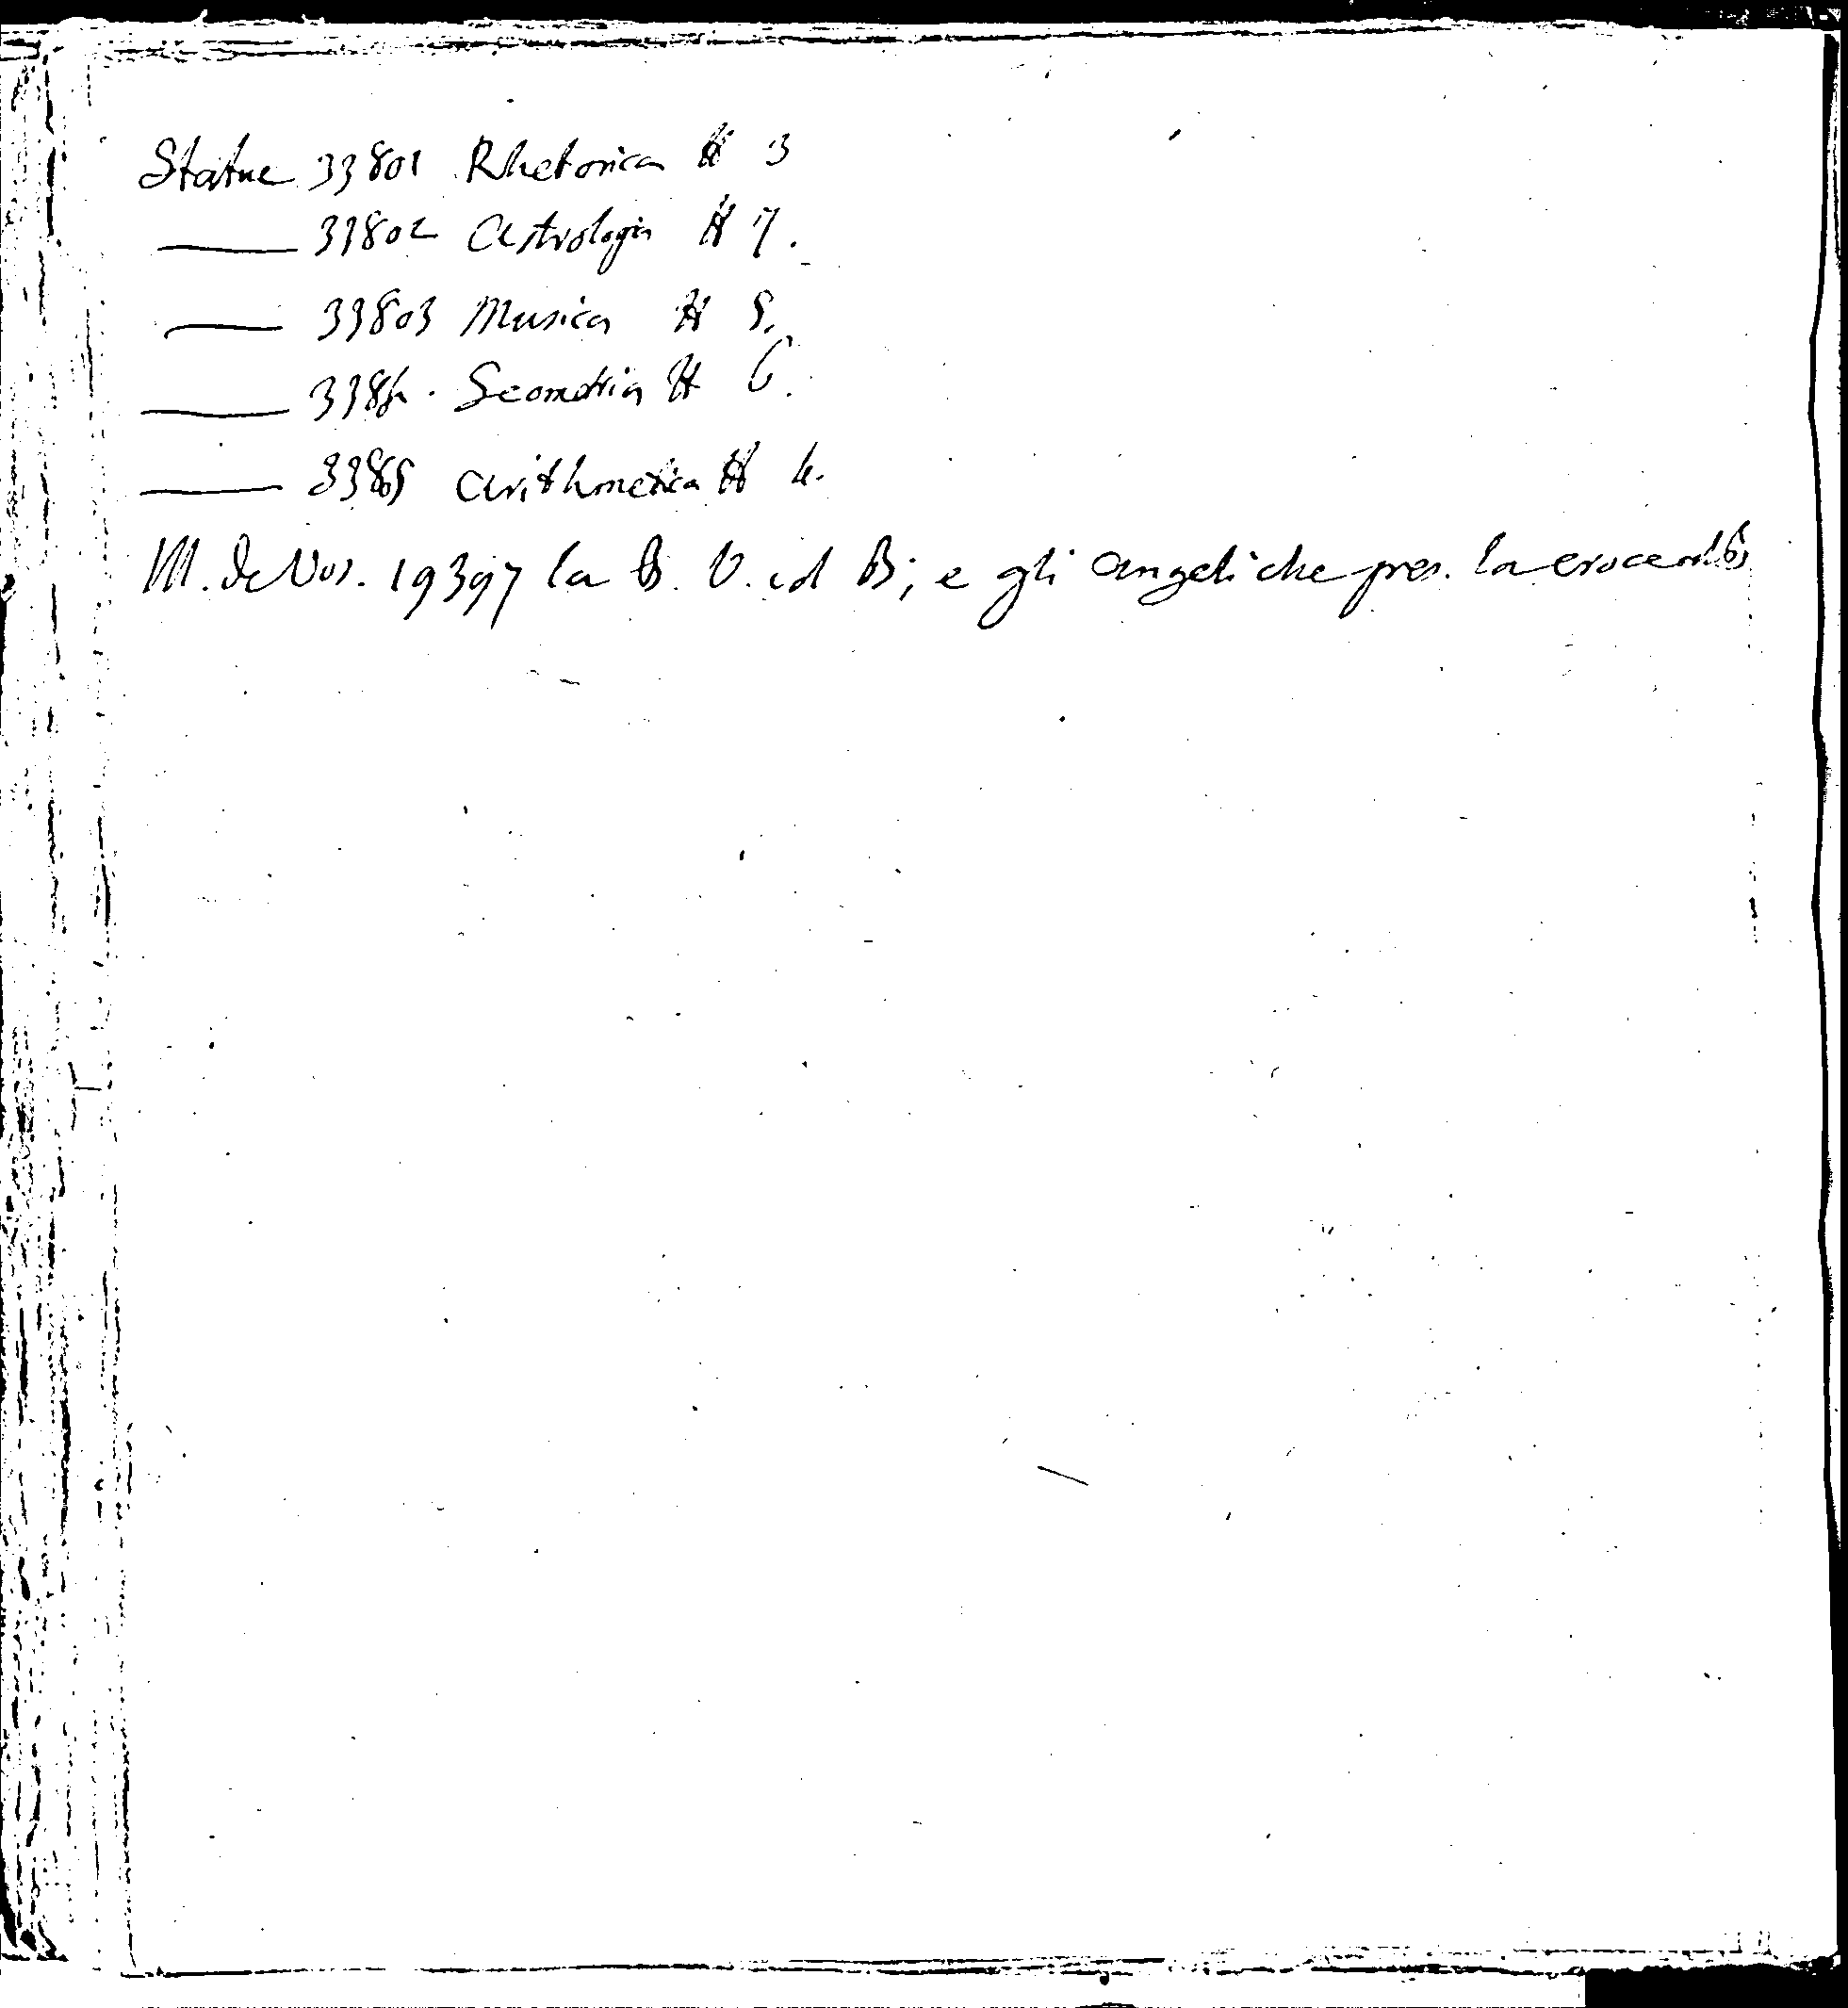 Statue 33801 Rhetorica # 3
—— 33802 Astrologia # 7.
—— 33803 Musica # 5.
—— 3384. Geometria # 6.
—— 3385 Arithmetica # 4.
M. de Vos. 19397 la B. V. col B; e gli angeli che pres. la croce